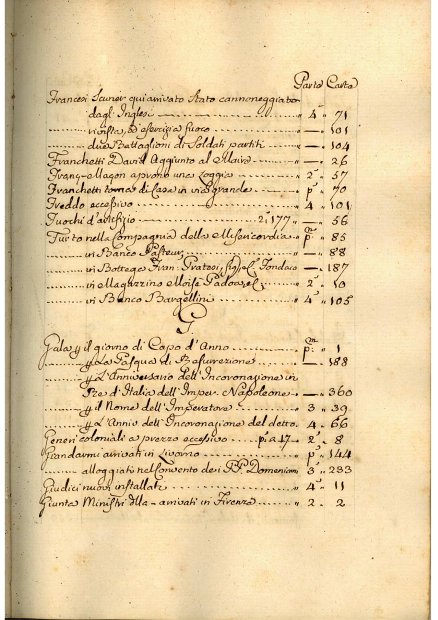 Parte Carta
Francesi Scuner qui arrivato Stato cannoneggiato
dagl' Inglesi 4ª 71
rivista, ed esercizio a fuoco 101
due Battaglioni di Soldati partiti 104
Franchetti David Aggiunto al Maire 26
Franc-Maçon aprono una Loggia 2ª 57
Franchetti torna di Casa in via grande pª 70
Freddo eccessivo 4 101
Fuochi d'artifizio 2ª 177 56
Furto nella Compagnia della Misericordia pª 85
in Banco Pasteur 88
in Bottega Fran: Fratesi, Fondaco 187
in Magazzino Moise Padova, 2ª 10
in Banco Bargellini 4ª 105
G.
Gala p il giorno di Capo d'Anno pª 1
p La Pasqua di Resurrezione 188
p L'Anniversario dell'Incoronazione in
Re d'Italia dell'Imper. Napoleone 360
p il Nome dell'Imperatore 3 39
p L'Anniv dell'Incoronazione del detto 4 66
Generi coloniali a prezzo eccessivo p.a 17 2ª 8
Giandarmi arrivati in Livorno pª 144
alloggiati nel Convento dei PP. Domenicani 3ª 233
Giudici nuovi installati 4ª 11
Giunta Ministri dlla arrivati in Firenze 2 2